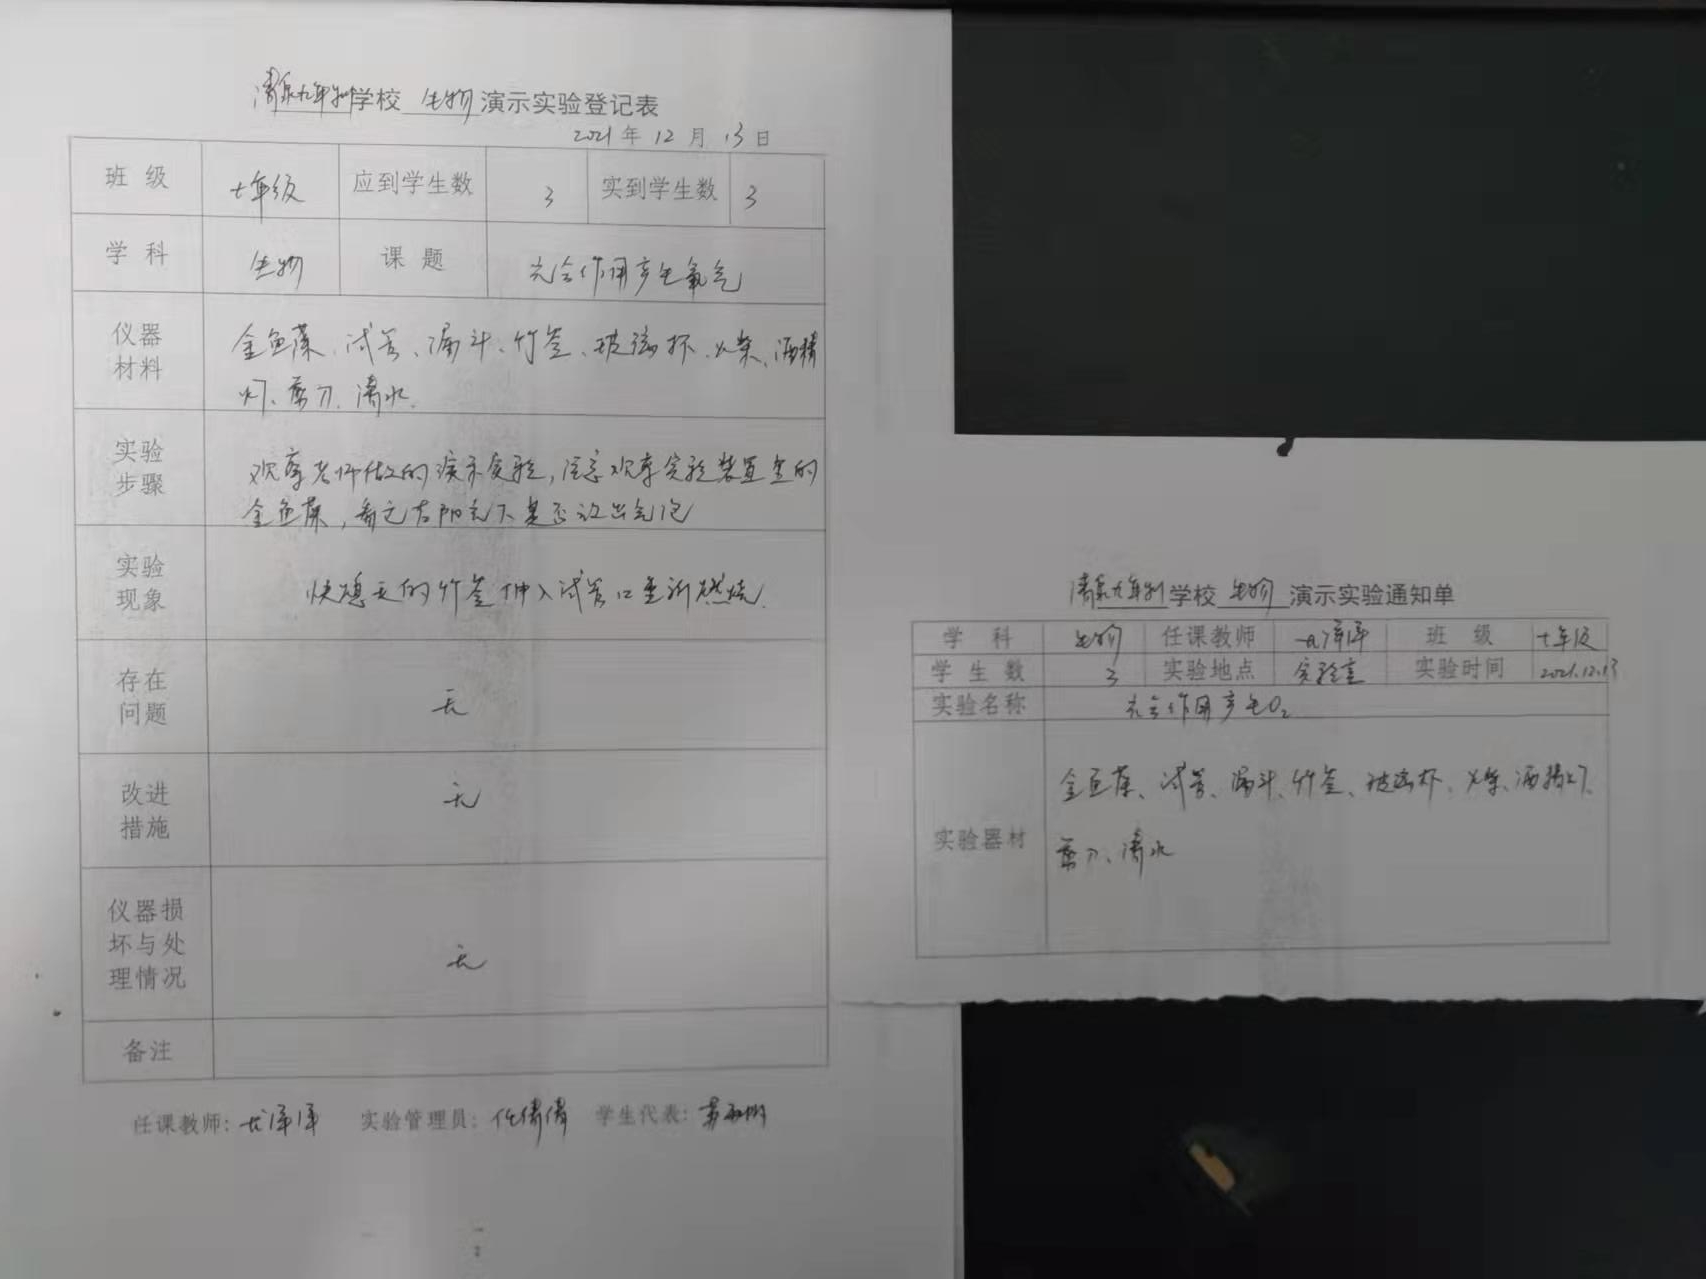 清泉九年制学校 生物 演示实验登记表
2021年 12月 13日
班级 七年级 应到学生数 3 实到学生数 3
学科 生物 课题 光合作用产生氧气
仪器材料 金鱼藻、试管、漏斗、竹签、玻璃杯、火柴、酒精
灯、剪刀、清水.
实验步骤 观察老师做的演示实验,注意观察实验装置里的
金鱼藻,看它在阳光下是否放出气泡
实验现象 快熄灭的竹签伸入试管口重新燃烧.
存在问题 无
改进措施 无
仪器损坏与处理情况 无
备注
任课教师: 实验管理员: 任倩倩 学生代表:
清泉九年制学校 生物 演示实验通知单
学科 生物 任课教师 班级 七年级
学生数 3 实验地点 实验室 实验时间 2021.12.13
实验名称 光合作用产生O₂
实验器材 金鱼藻、试管、漏斗、竹签、玻璃杯、火柴、酒精灯、
剪刀、清水